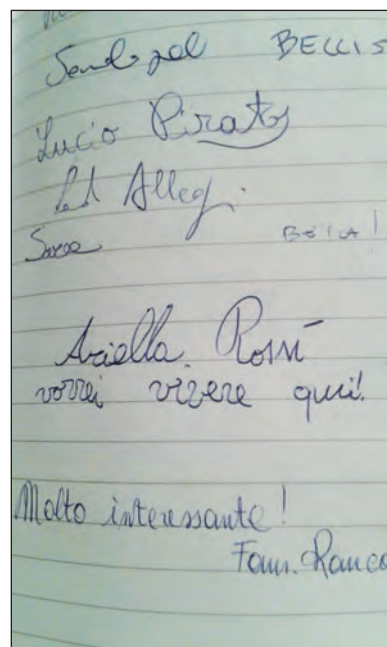 BELLIS
Lucio Piratos
Allegi
Sara BELLA!
Ariella Rossi
vorrei vivere qui!
Molto interessante!
Fam. Ranco